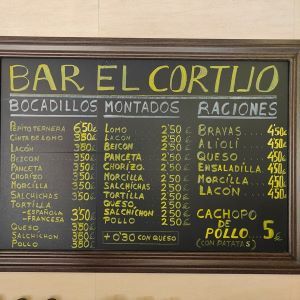 BAR EL CORTIJO
BOCADILLOS
PEPITO TERNERA 6'50€
CINTA DE LOMO 3'50€
LACÓN 3'50€
BEICON 3'50€
PANCETA 3'50€
CHORIZO 3'50€
MORCILLA 3'50€
SALCHICHAS 3'50€
TORTILLA
-ESPAÑOLA 3'50€
-FRANCESA 3'50€
QUESO 3'50€
SALCHICHON 3'50€
POLLO 3'80€
MONTADOS
LOMO 2'50€
LACON 2'50€
BEICON 2'50€
PANCETA 2'50€
CHORIZO 2'50€
MORCILLA 2'50€
SALCHICHAS 2'50€
TORTILLA 2'50€
QUESO 2'50€
SALCHICHON 2'50€
POLLO 2'50€
+0'30 CON QUESO
RACIONES
BRAVAS 4'50€
ALIOLI 4'50€
QUESO 4'50€
ENSALADILLA 4'50€
MORCILLA 4'50€
LACON 4'50€
CACHOPO
DE
POLLO 5€
(CON PATATAS)